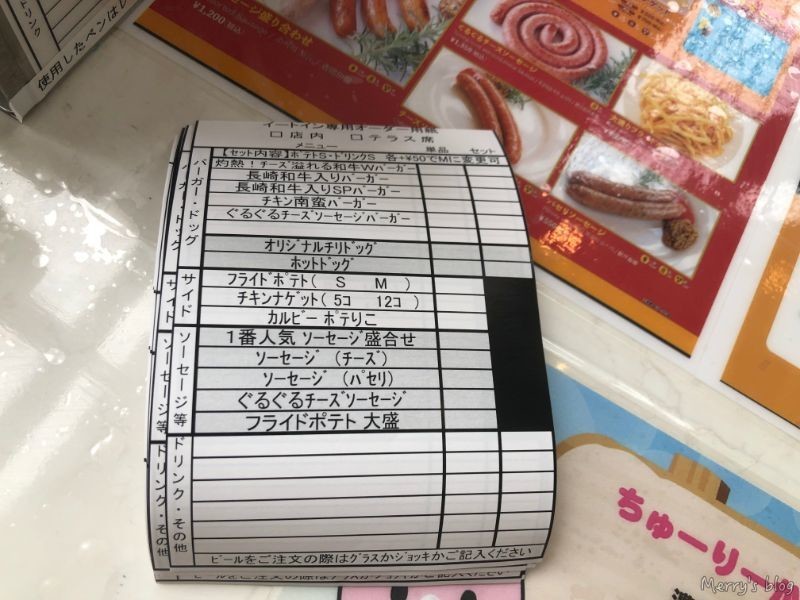 ドリンク
使用したペンはレ
ソーセージ盛り合わせ
¥1,200
ぐるぐるチーズソーセージ
イートイン専用オーダー用紙
□店内 □テラス席
メニュー 単品 セット
【セット内容】ポテトS・ドリンクS 各+¥50でMに変更可
バーガー・ドッグ
灼熱!チーズ溢れる和牛Wバーガー
長崎和牛入りバーガー
長崎和牛入りSPバーガー
チキン南蛮バーガー
ぐるぐるチーズソーセージバーガー
オリジナルチリドッグ
ホットドッグ
サイド
フライドポテト( S M )
チキンナゲット( 5コ 12コ )
カルビー ポテりこ
ソーセージ等
1番人気 ソーセージ盛合せ
ソーセージ (チーズ)
ソーセージ (パセリ)
ぐるぐるチーズソーセージ
フライドポテト 大盛
ドリンク・その他
ビールをご注文の際はグラスかジョッキかご記入ください
パセリソーセージ
ちゅーりー
Merry's blog